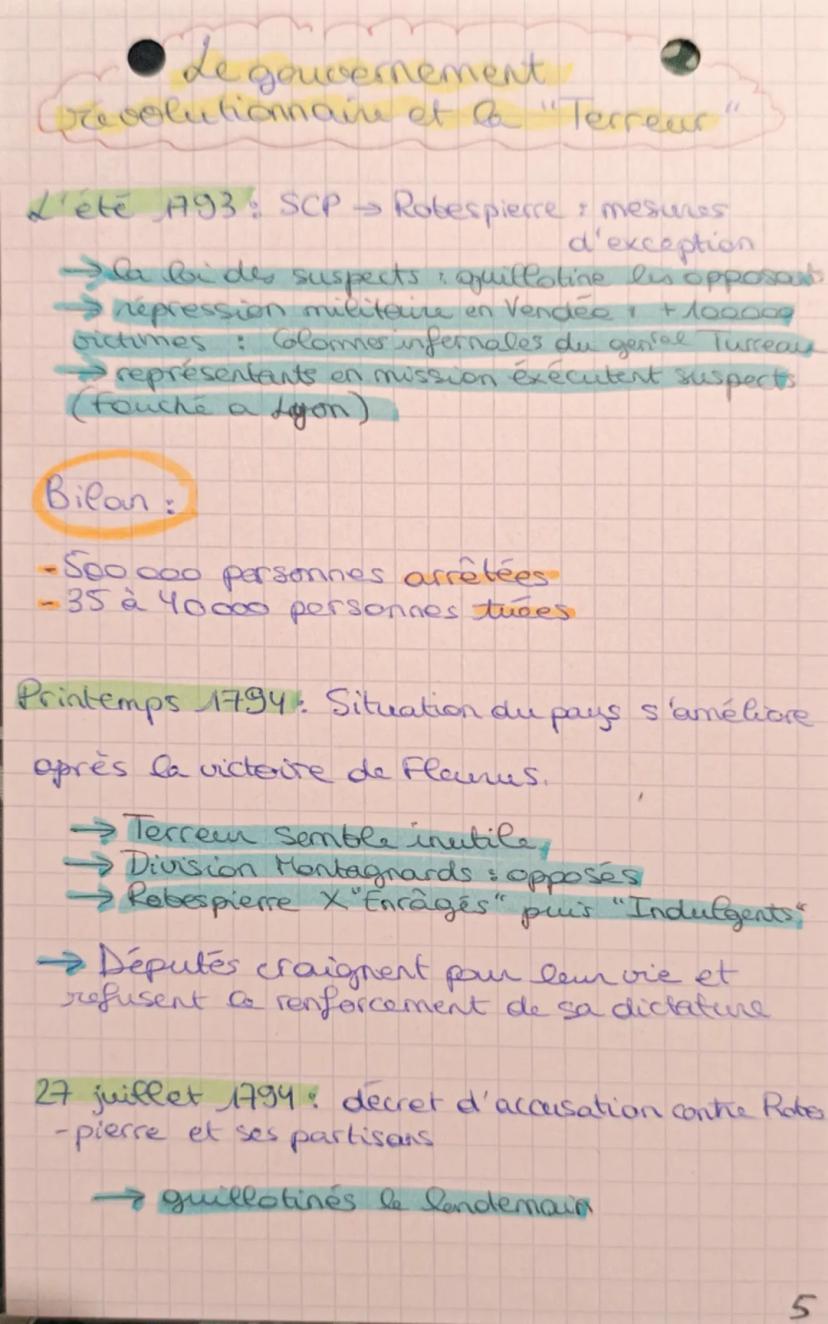 Le gouvernement
révolutionnaire et la "Terreur"
L'été 1793 : SCP → Robespierre : mesures
d'exception
→ la loi des suspects : guillotine les opposants
→ répression militaire en Vendée : + 100000
victimes : Colonnes infernales du général Turreau
→ représentants en mission éxécutent suspects
(Fouché a Lyon)
Bilan :
- 500 000 personnes arrêtées
- 35 à 40000 personnes tuées
Printemps 1794 : Situation du pays s'améliore
après la victoire de Fleurus.
→ Terreur semble inutile,
→ Division Montagnards : opposés
→ Robespierre X "Enrâgés" puis "Indulgents"
→ Députés craignent pour leur vie et
refusent le renforcement de sa dictature
27 juillet 1794 : décret d'accusation contre Robes
-pierre et ses partisans
→ guillotinés le lendemain
5